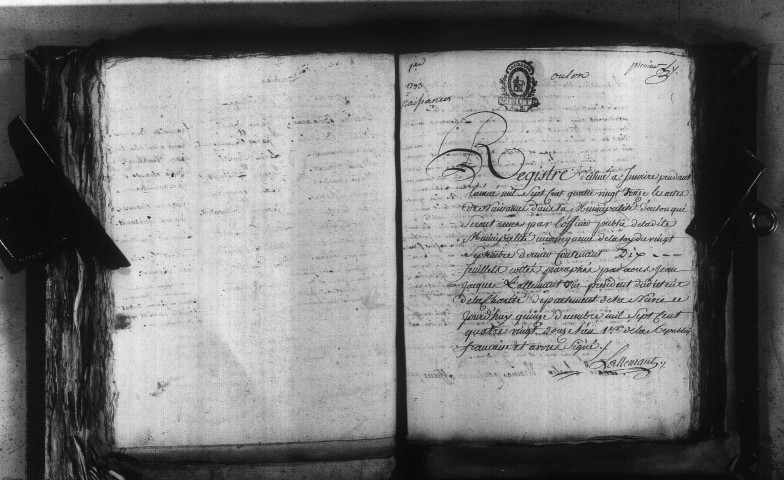 1793
naissances
oulon
premier
Registre destiné a Inscrire pendant
l'année mil Sept Cent quatre vingt treize les actes
de Naissances dans la Municipalité d'oulon qui
Seront reçus par l'officier public de ladite
Municipalité en vingt
Septembre dernier Contenant Dix
feuillets cottés paraphés par nous Jean
Jaques Lallemant vice président du district
de la Charité département de la Nièvre ce
Jourd'huy quinze décembre mil Sept Cent
quatre vingt douze l'an 1er de la République
française et avons Signé
Lallemant